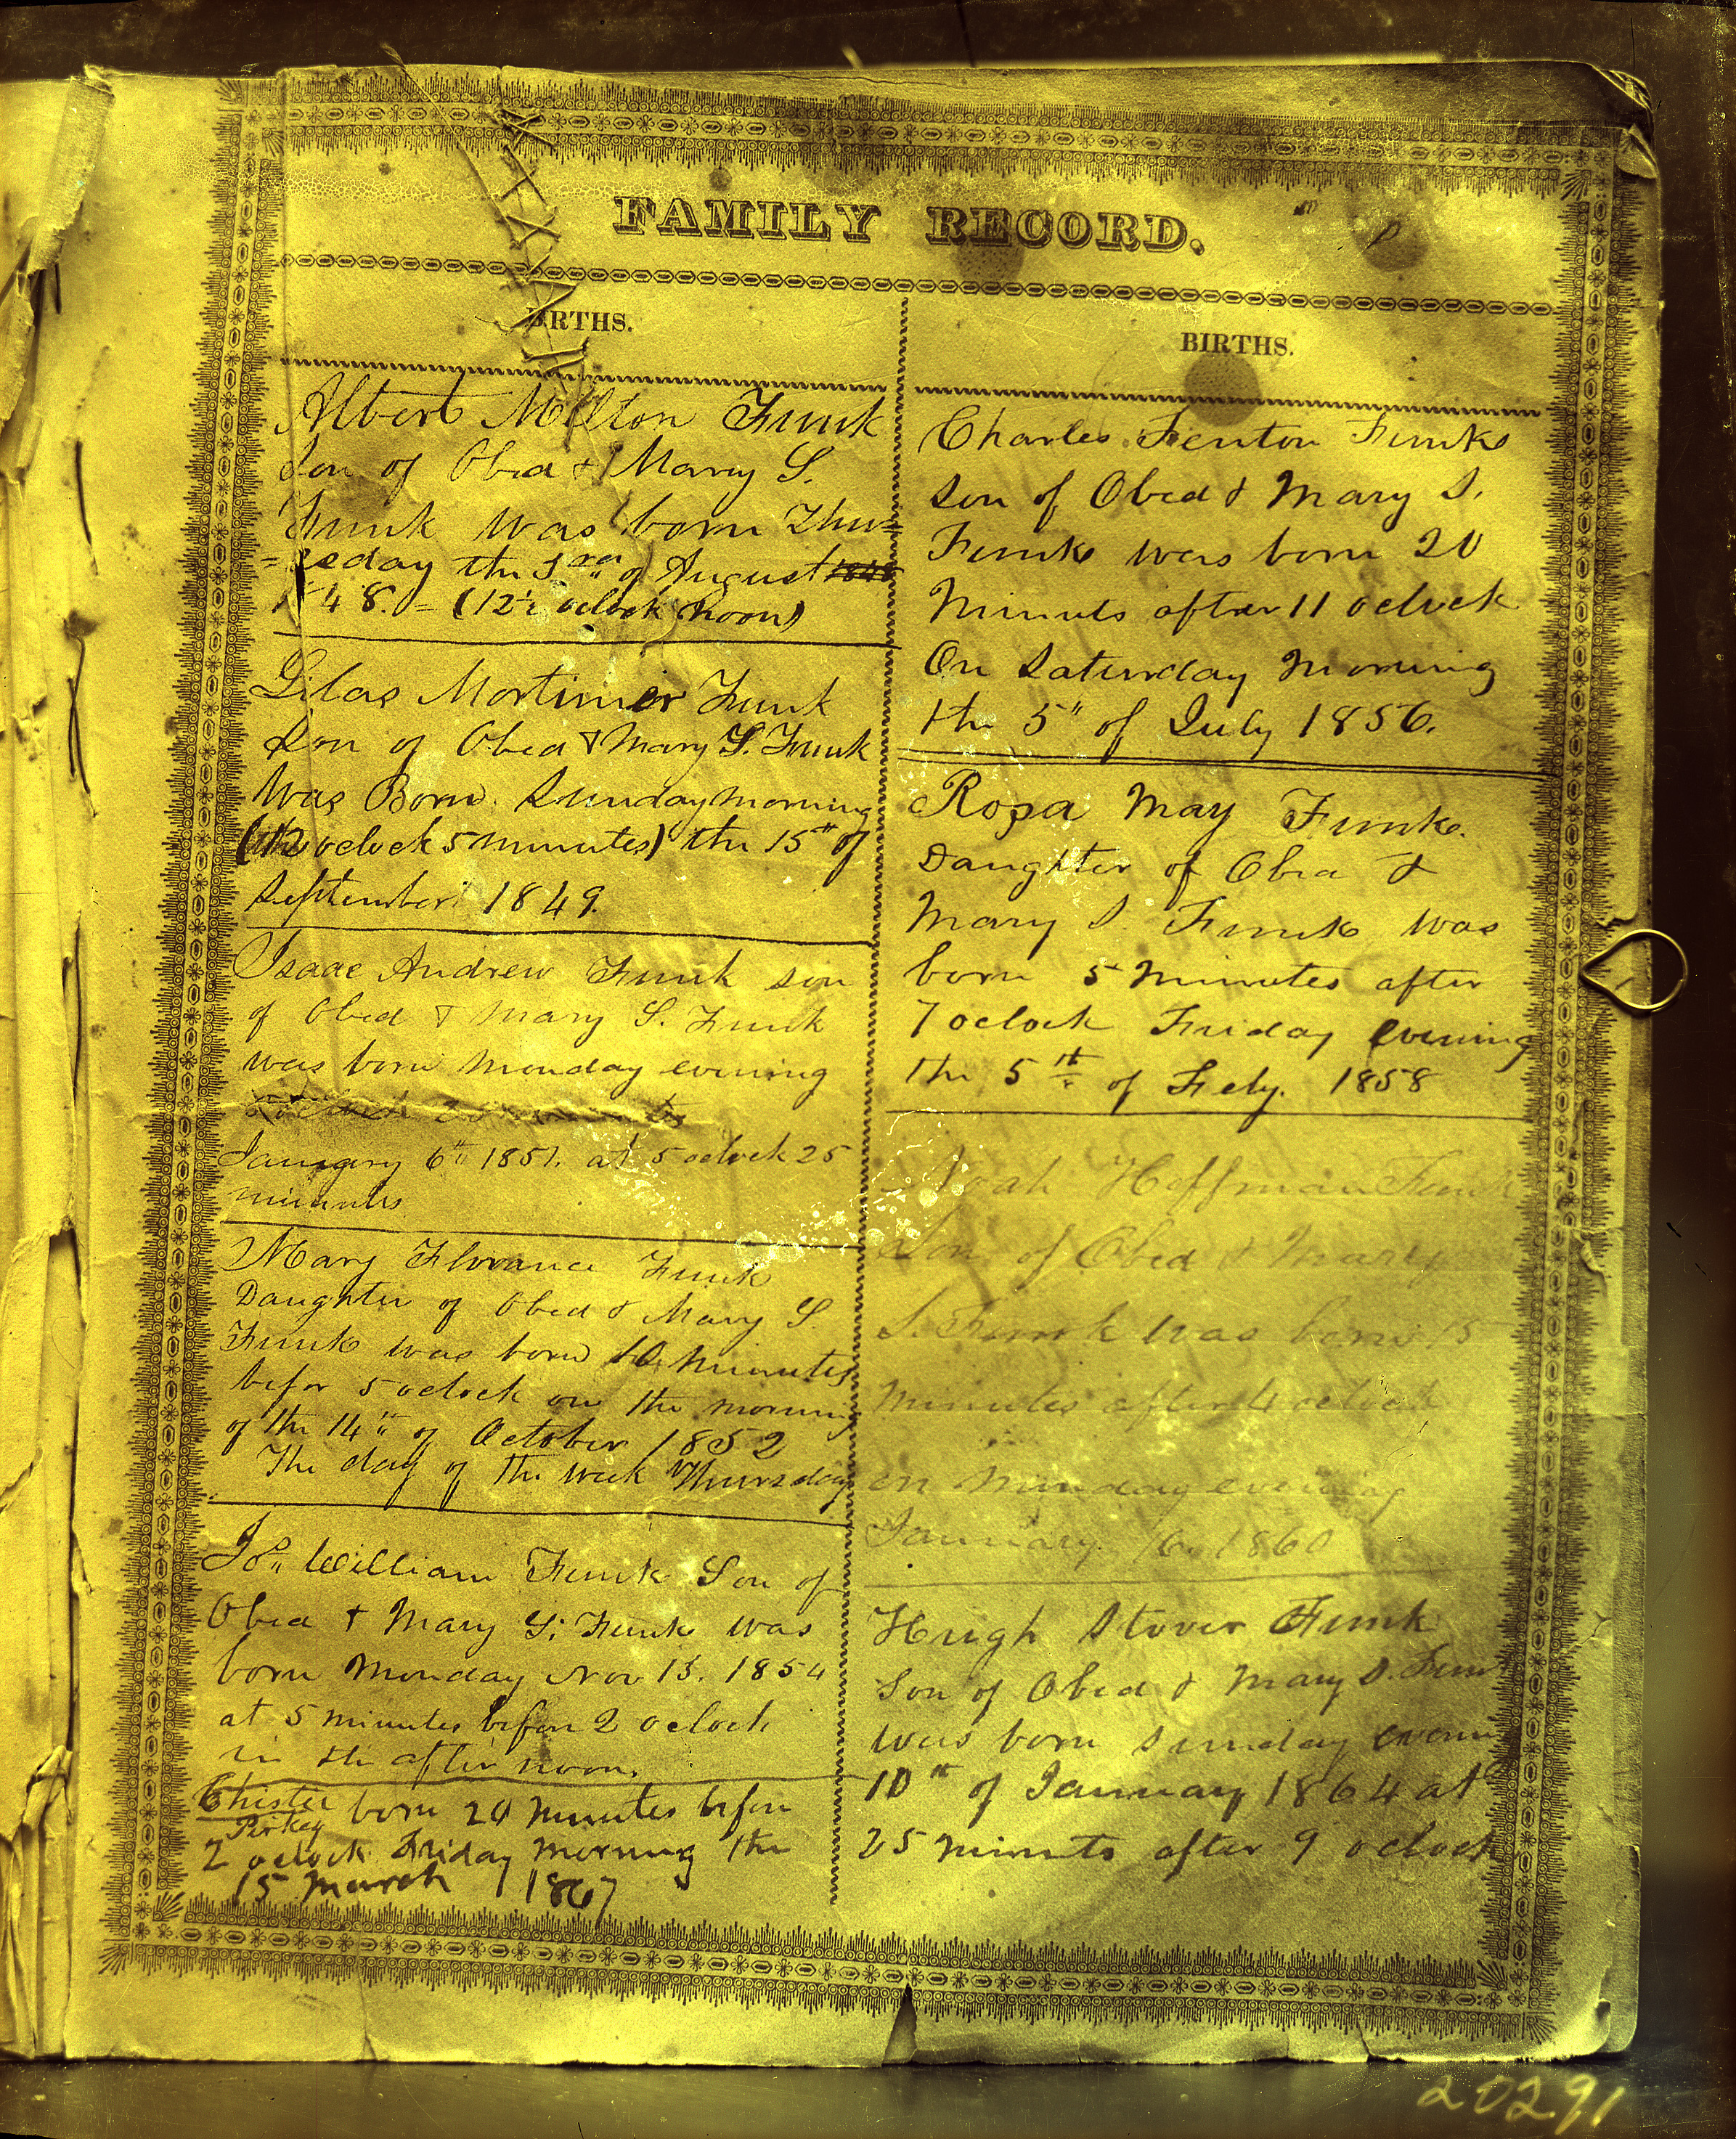 FAMILY RECORD.
BIRTHS.
Albert Milton Funk
Son of Obed & Mary S.
Funk was born Thu=
=rseday the 3rd of August
1848. = (12½ oclock noon)
Silas Mortimer Funk
Son of Obed & Mary S. Funk
Was Born Sunday morning
oclock 5 minutes) the 15th of
September 1849.
Isaac Andrew Funk son
of Obed & Mary S. Funk
was born Monday evening
January 6th 1851. at 5 oclock 25
minutes
Mary Florance Funk
Daughter of Obed & Mary S.
Funk was born 10 minutes
befor 5 oclock on the morning
of the 14th of October 1852
The day of the week Thursday
Jos William Funk Son of
Obed & Mary S. Funk was
born Monday Nov 13. 1854
at 5 minutes befor 2 oclock
in the after noon.
Chister born 20 minutes befor
Perkey
2 oclock Friday morning the
15 March 1867
BIRTHS.
Charles Fenton Funk
Son of Obed & Mary S.
Funk was born 20
Minuts after 11 oclock
On Saturday Morning
the 5" of July 1856.
Rosa May Funk.
Daughter of Obed &
Mary S. Funk was
born 5 Minutes after
7 oclock Friday evening
the 5th of Feby. 1858
Noah Hoffman Funk
Son of Obed & Mary
S. Funk was born 15
minutes after 4 oclock
on Monday evening
January 16. 1860
Hugh Stover Funk
Son of Obed & Mary S. Funk
was born Sunday evening
10th of January 1864 at
25 minuts after 9 oclock
20291